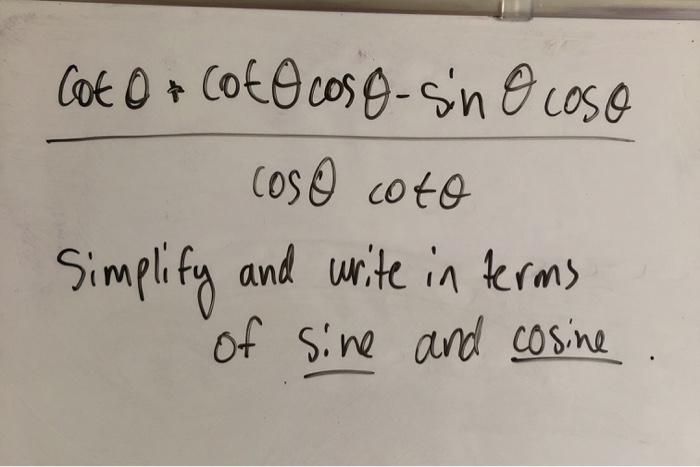 cot θ + cot θ cos θ - sin θ cos θ
cos θ cot θ
Simplify and write in terms
of sine and cosine.